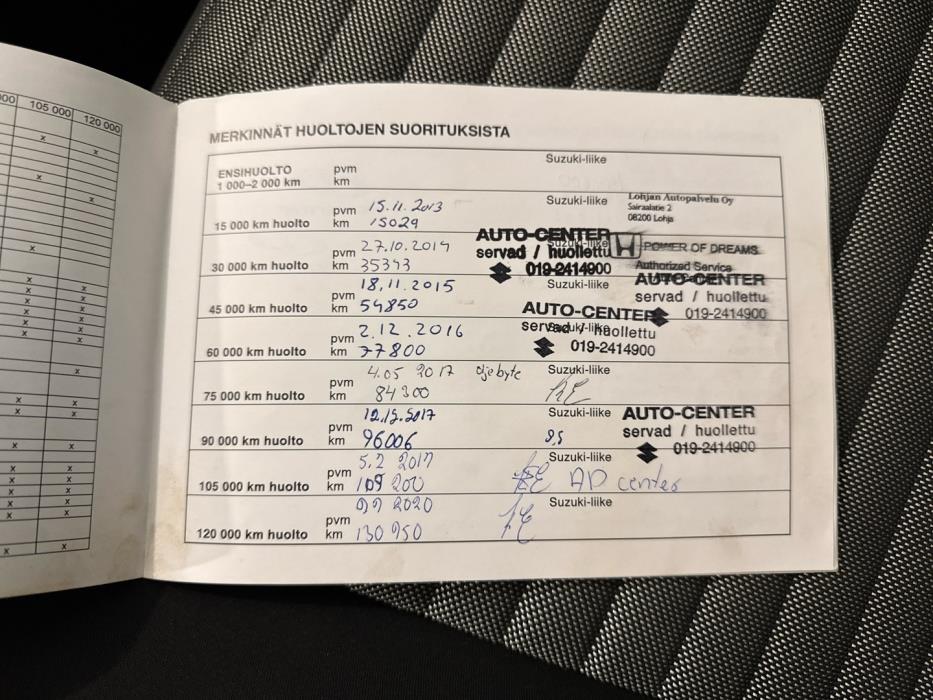 00 105 000 120 000
MERKINNÄT HUOLTOJEN SUORITUKSISTA
ENSIHUOLTO
1 000–2 000 km
pvm
km
Suzuki-liike
15 000 km huolto
pvm 15.11.2013
km 15029
Suzuki-liike
Lohjan Autopalvelu Oy
Sairaalatie 2
08200 Lohja
30 000 km huolto
pvm 27.10.2014
km 35343
Suzuki-liike
AUTO-CENTER
servad / huollettu
019-2414900
POWER OF DREAMS
Authorized Service
45 000 km huolto
pvm 18.11.2015
km 54850
Suzuki-liike
AUTO-CENTER
servad / huollettu
019-2414900
60 000 km huolto
pvm 2.12.2016
km 77800
Suzuki-liike
AUTO-CENTER
servad / huollettu
019-2414900
75 000 km huolto
pvm 4.05 2017 oljebyte
km 84300
Suzuki-liike
90 000 km huolto
pvm
km 96006
Suzuki-liike
AUTO-CENTER
servad / huollettu
019-2414900
105 000 km huolto
pvm
km
Suzuki-liike
AD center
120 000 km huolto
pvm
km
Suzuki-liike